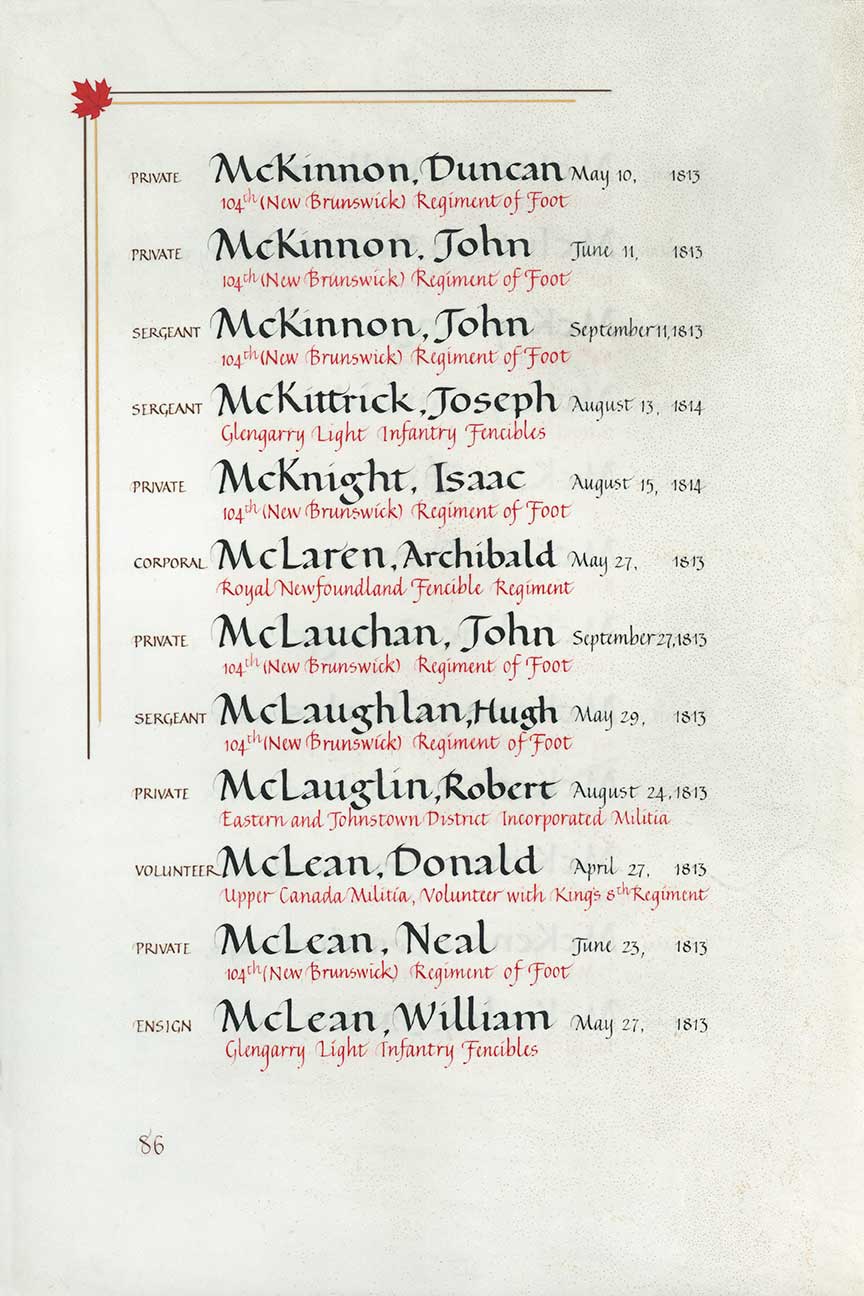 PRIVATE McKinnon, Duncan May 10, 1813
104th (New Brunswick) Regiment of Foot
PRIVATE McKinnon, John June 11, 1813
104th (New Brunswick) Regiment of Foot
SERGEANT McKinnon, John September 11, 1813
104th (New Brunswick) Regiment of Foot
SERGEANT McKittrick, Joseph August 13, 1814
Glengarry Light Infantry Fencibles
PRIVATE McKnight, Isaac August 15, 1814
104th (New Brunswick) Regiment of Foot
CORPORAL McLaren, Archibald May 27, 1813
Royal Newfoundland Fencible Regiment
PRIVATE McLauchan, John September 27, 1813
104th (New Brunswick) Regiment of Foot
SERGEANT McLaughlan, Hugh May 29, 1813
104th (New Brunswick) Regiment of Foot
PRIVATE McLauglin, Robert August 24, 1813
Eastern and Johnstown District Incorporated Militia
VOLUNTEER McLean, Donald April 27, 1813
Upper Canada Militia, Volunteer with King's 8th Regiment
PRIVATE McLean, Neal June 23, 1813
104th (New Brunswick) Regiment of Foot
ENSIGN McLean, William May 27, 1813
Glengarry Light Infantry Fencibles
86